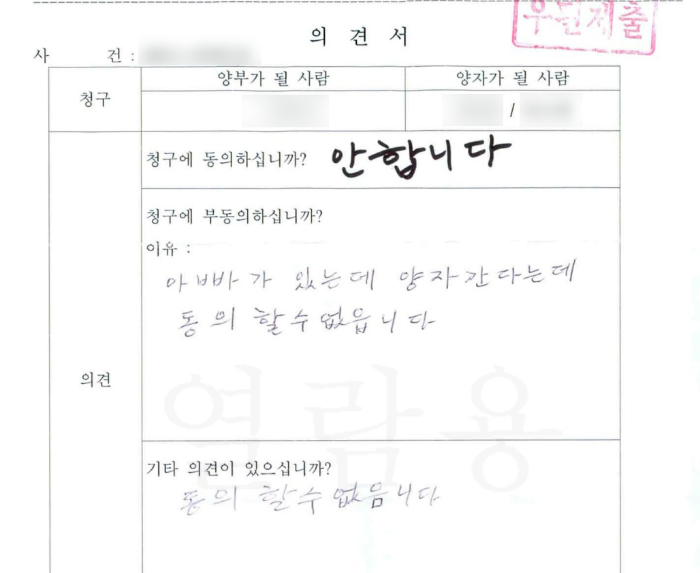 우편제출
의 견 서
사 건 :
청구
양부가 될 사람
양자가 될 사람
/
의견
청구에 동의하십니까? 안합니다
청구에 부동의하십니까?
이유 :
아빠가 있는데 양자간다는데
동의 할수없읍니다
열람용
기타 의견이 있으십니까?
동의 할수없음니다